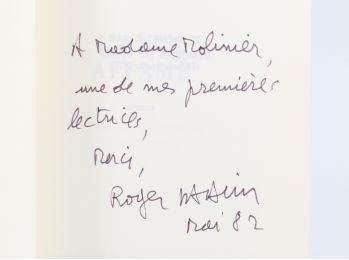 A Madame Molinier,
une de mes premières
lectrices,
Merci,
Roger
Mai 82